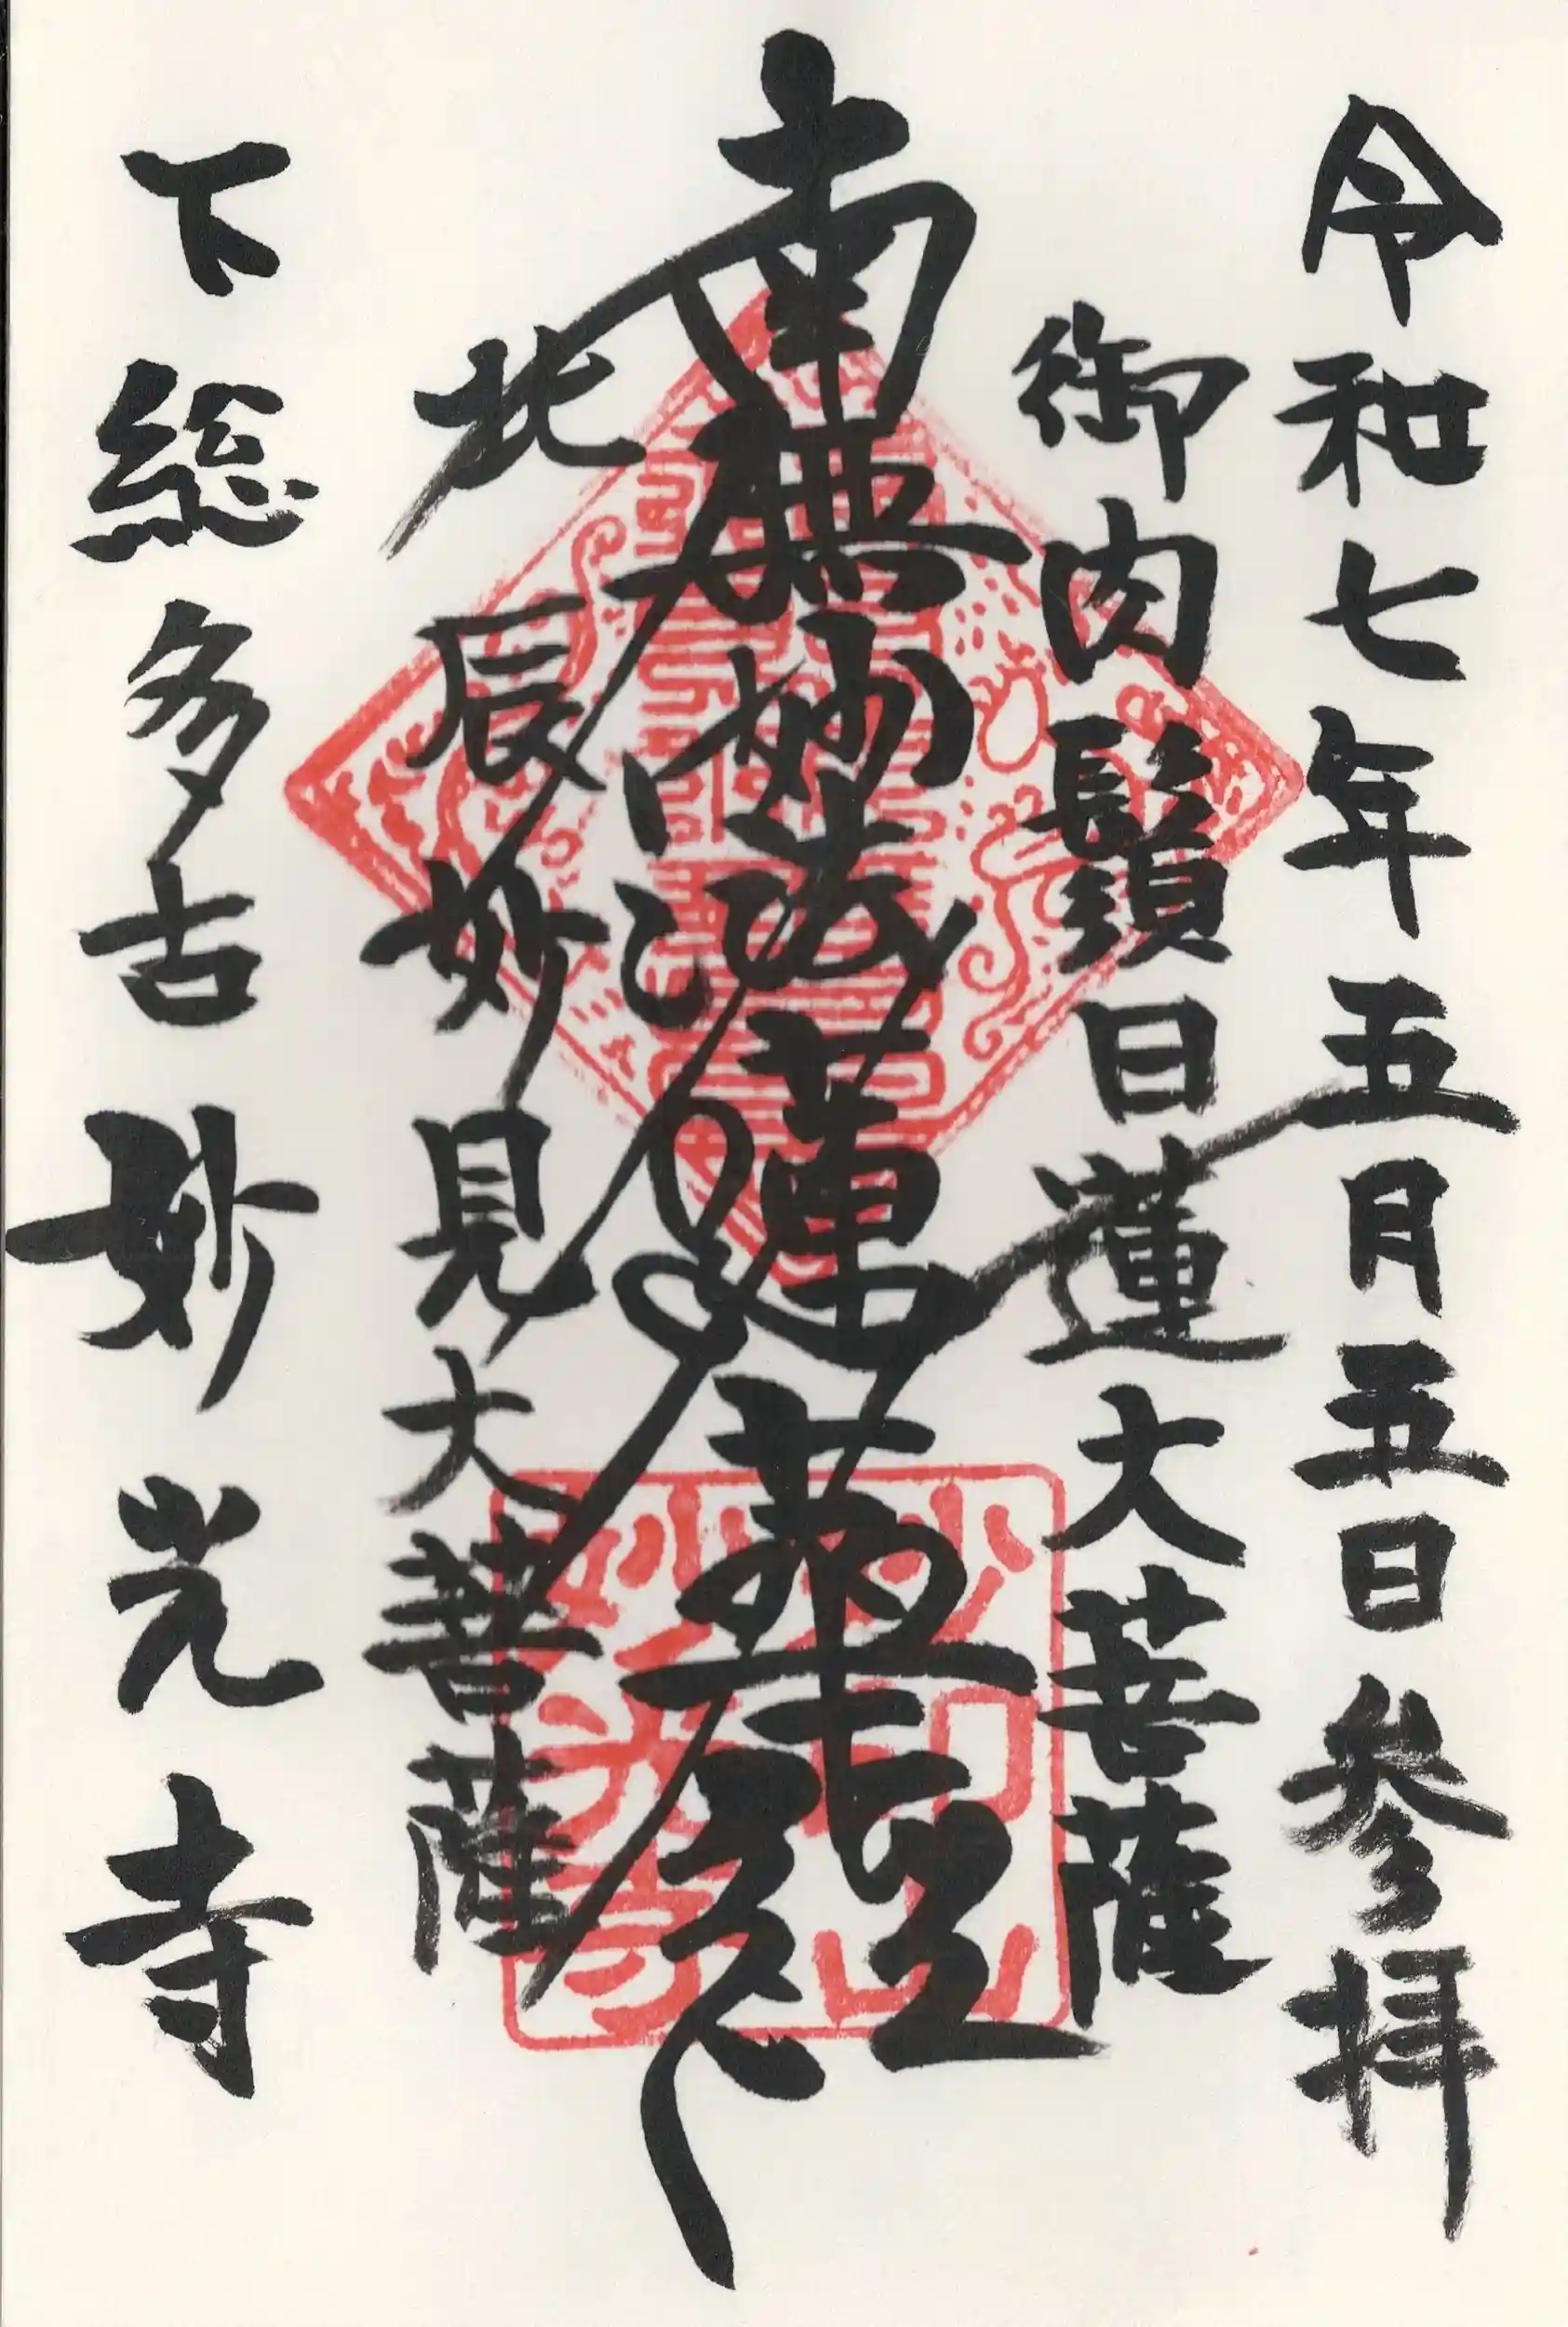 令和七年五月五日参拝
御肉鬚日蓮大菩薩
南無妙法蓮華経
北辰妙見大菩薩
下総多古妙光寺
妙印山
妙光寺